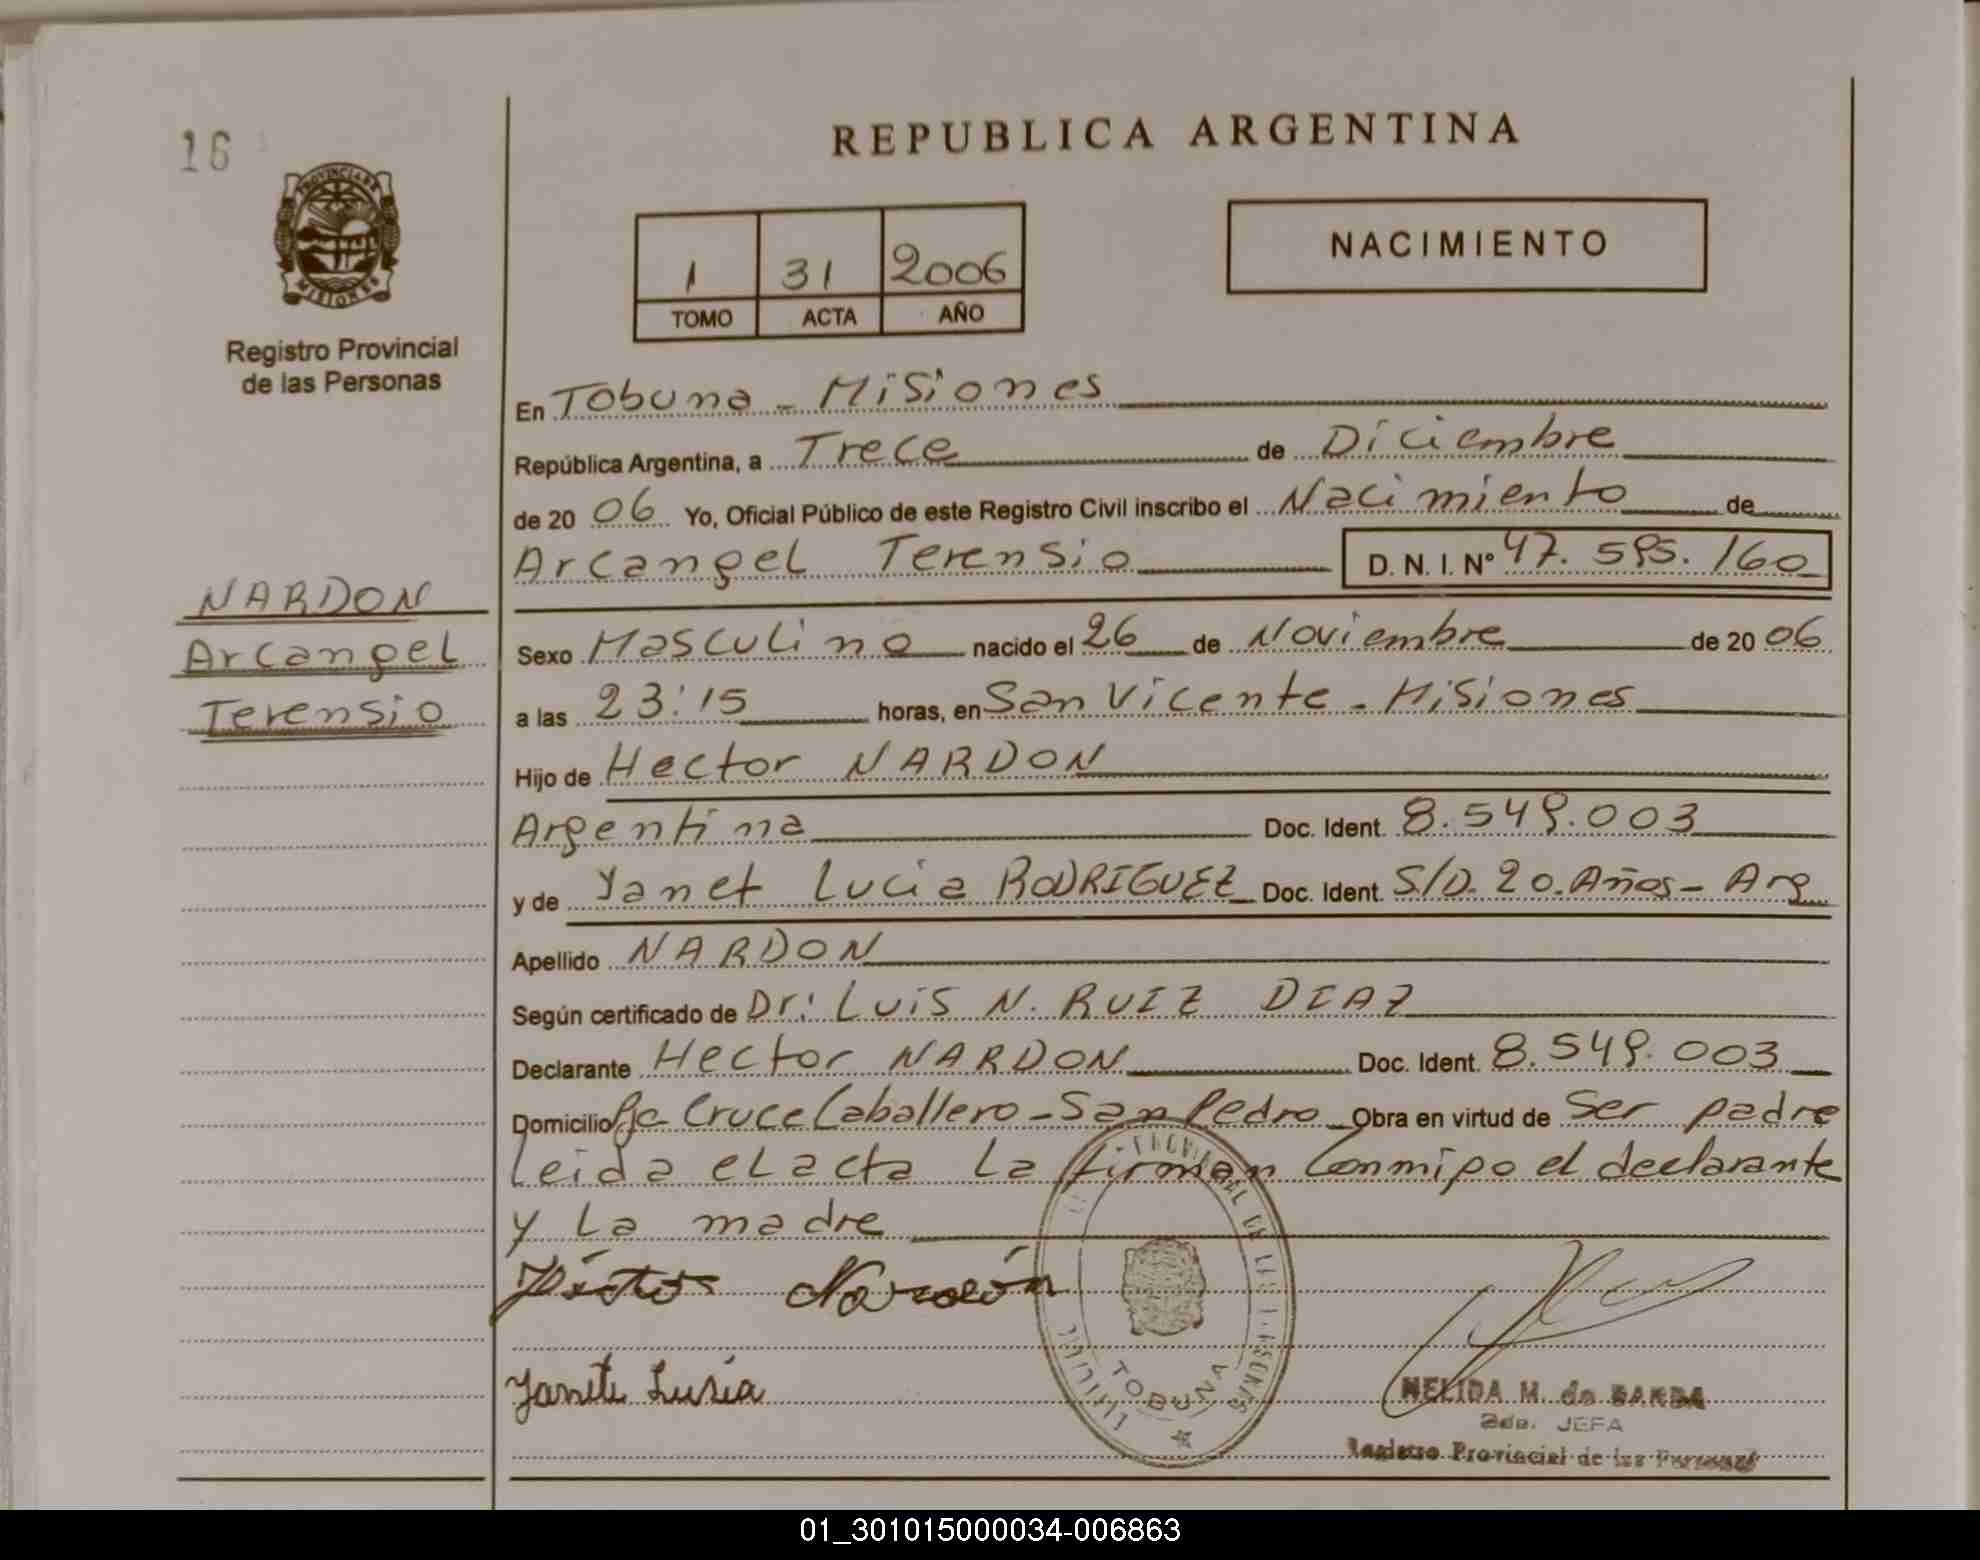 16
PROVINCIA DE
MISIONES
Registro Provincial
de las Personas
NARDON
Arcangel
Terensio
REPUBLICA ARGENTINA
1 31 2006
TOMO ACTA AÑO
NACIMIENTO
En Tobuna - Misiones
República Argentina, a Trece de Diciembre
de 20 06 Yo, Oficial Público de este Registro Civil inscribo el Nacimiento de
Arcangel Terensio D. N. I. Nº 47.595.160
Sexo Masculino nacido el 26 de Noviembre de 20 06
a las 23:15 horas, en San Vicente - Misiones
Hijo de Hector NARDON
Argentina Doc. Ident. 8.549.003
y de Yanet Lucia RODRIGUEZ Doc. Ident. S/D. 20. Años - Arg
Apellido NARDON
Según certificado de Dr: Luis N. RUIZ DIAZ
Declarante Hector NARDON Doc. Ident. 8.549.003
Domicilio Pje Cruce Caballero - San Pedro Obra en virtud de Ser padre
Leida el acta La firman Conmigo el declarante
y La madre
TOBUNA
NELIDA M. de
2da. JEFA
Registro Provincial de las Personas
01_301015000034-006863